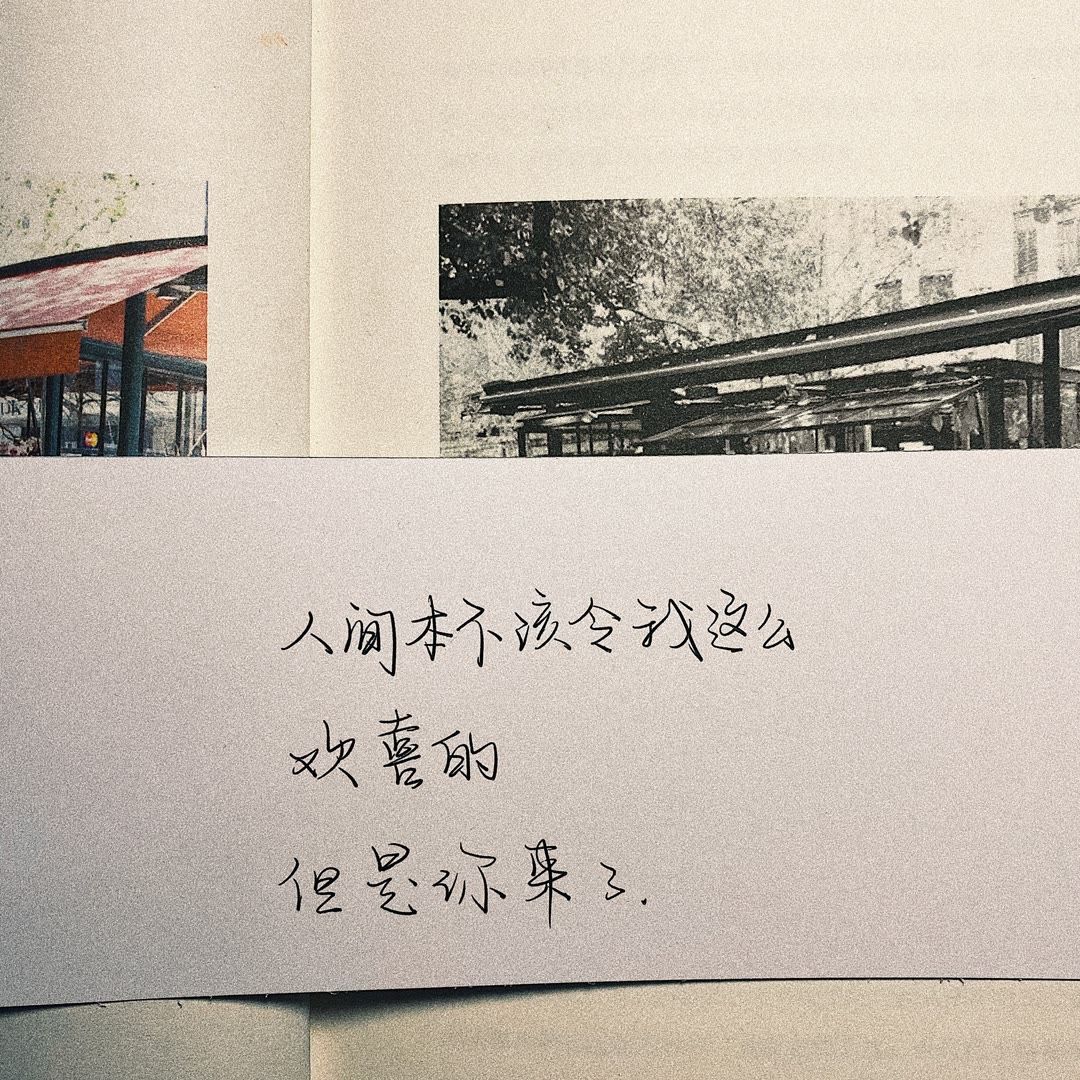 人间本不该令我这么
欢喜的
但是你来了.